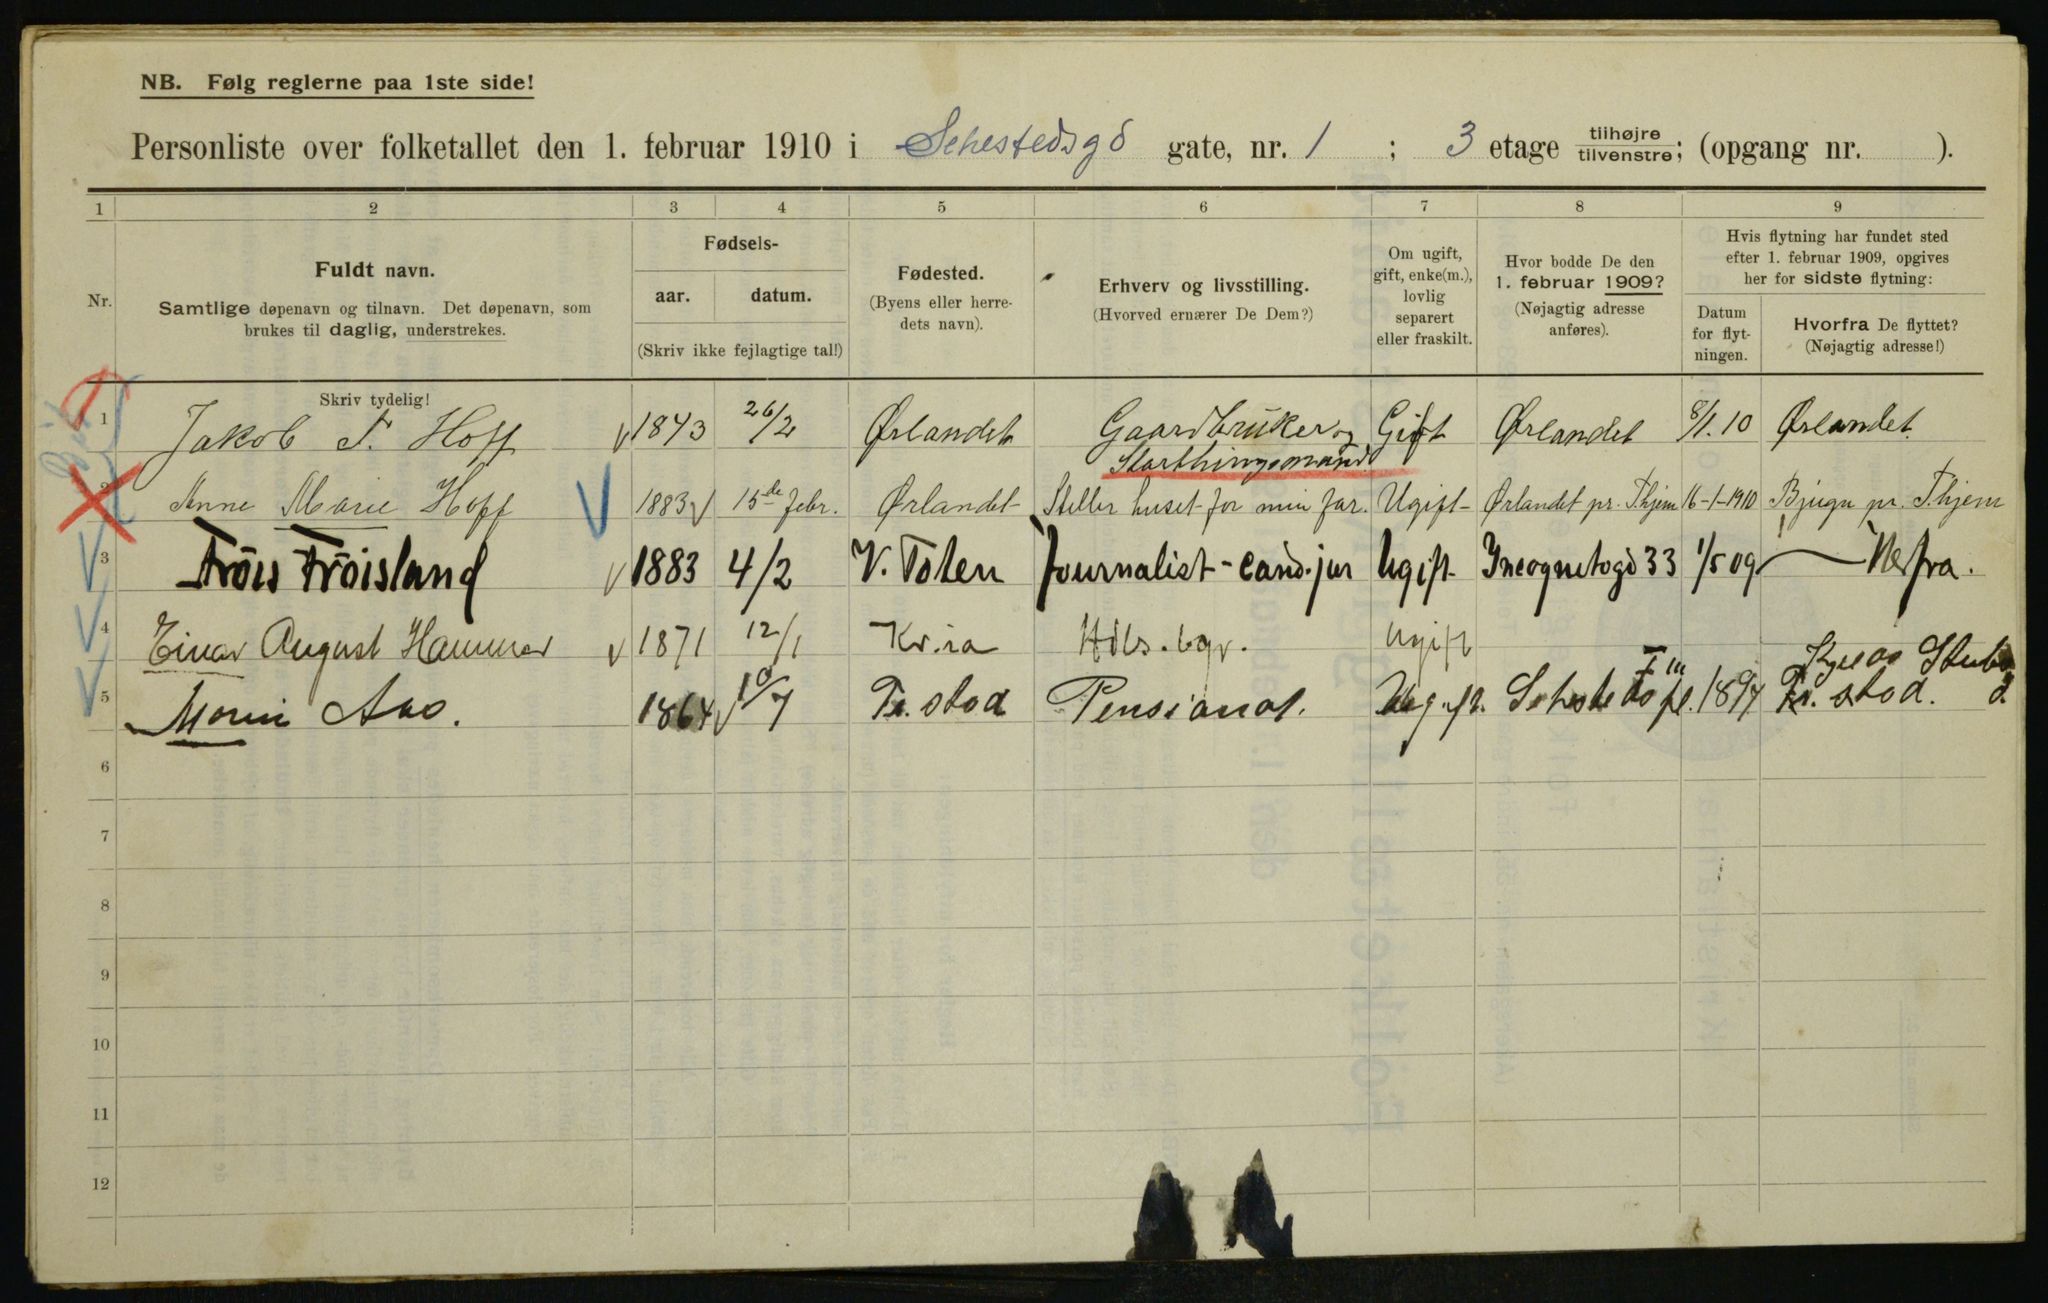 NB. Følg reglerne paa 1ste side!
Personliste over folketallet den 1. februar 1910 i Sehestedsgd gate, nr. 1 ; 3 etage tilhøjre tilvenstre; (opgang nr. ).
1 2 3 4 5 6 7 8 9
Nr.
Fuldt navn.
Samtlige døpenavn og tilnavn. Det døpenavn, som
brukes til daglig, understrekes.
Fødsels-
aar. datum.
(Skriv ikke fejlagtige tal!)
Fødested.
(Byens eller herre-
dets navn).
Erhverv og livsstilling.
(Hvorved ernærer De Dem?)
Om ugift,
gift, enke(m.),
lovlig
separert
eller fraskilt.
Hvor bodde De den
1. februar 1909?
(Nøjagtig adresse
anføres).
Hvis flytning har fundet sted
efter 1. februar 1909, opgives
her for sidste flytning:
Datum
for flyt-
ningen.
Hvorfra De flyttet?
(Nøjagtig adresse!)
Skriv tydelig!
1 Jakob T. Hoff 1843 26/2 Ørlandet Gaardbruker og Gift Ørlandet 8/1.10 Ørlandet.
Storthingsmand
2 Anne Marie Hoff 1883 15de febr. Ørlandet Steller huset for min far. Ugift Ørlandet pr. T.hjem 16-1-1910 Bjugn pr. T.hjem
3 Fröis Fröisland 1883 4/2 V. Toten Journalist - cand. jur Ugift Incognitogd 33 1/5 09 Herfra.
4 Einar August Hammer 1871 12/1 Kr.ia Hdls.bgr. Ugift
5 Aas. 1864 10/7 Fr. stad Pensionat. Ugift. 1897 Fr. stad.
6
7
8
9
10
11
12